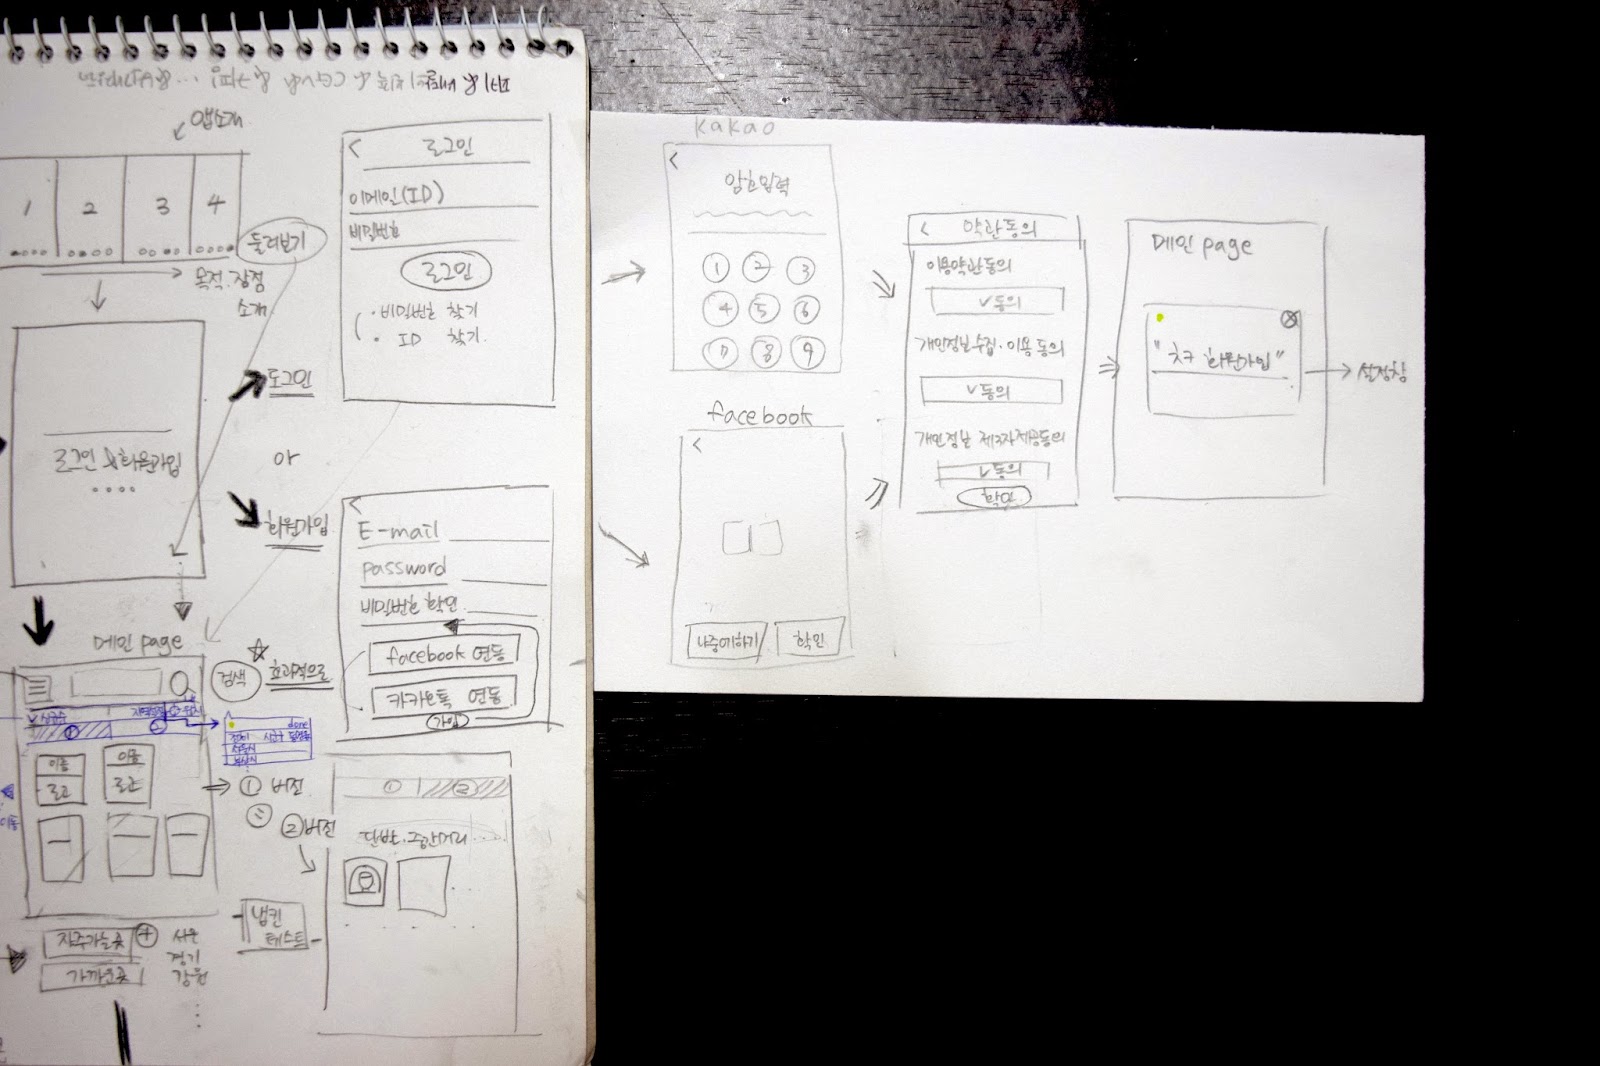 앱소개
1 2 3 4
둘러보기
목적.장점
소개
로그인 & 회원가입
....
로그인
or
회원가입
< 로그인
이메일(ID)
비밀번호
로그인
· 비밀번호 찾기
· ID 찾기
<
E-mail
password
비밀번호 확인
facebook 연동
카카오톡 연동
가입
메인 page
검색
효과적으로
① ②
done
이름 이름
로고 로고
이동
① 버전
② 버전
① ②
단반.중간거리
냅킨
테스트
자주가는곳 +
가까운곳
서울
경기
강원
kakao
<
암호입력
① ② ③
④ ⑤ ⑥
⑦ ⑧ ⑨
facebook
<
나중에하기 확인
< 약관동의
이용약관동의
v 동의
개인정보수집.이용동의
v 동의
개인정보 제3자제공동의
v 동의
확인
메인 page
회원가입"
→ 설정창